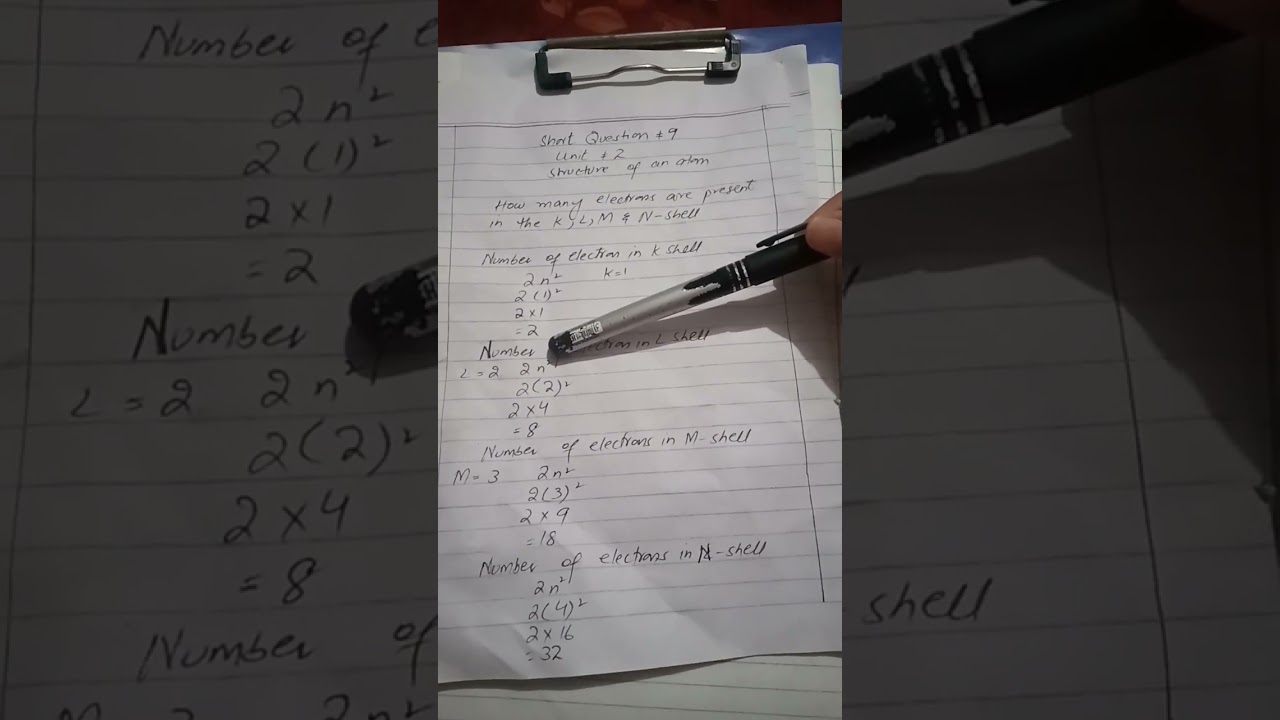 Short Question # 9
Unit # 2
Structure of an atom
How many electrons are present
in the K, L, M & N-shell
Number of electron in K shell
2n² K=1
2(1)²
2×1
=2
Number electron in L shell
L=2 2n²
2(2)²
2×4
=8
Number of electrons in M-shell
M=3 2n²
2(3)²
2×9
=18
Number of electrons in N-shell
2n²
2(4)²
2×16
=32